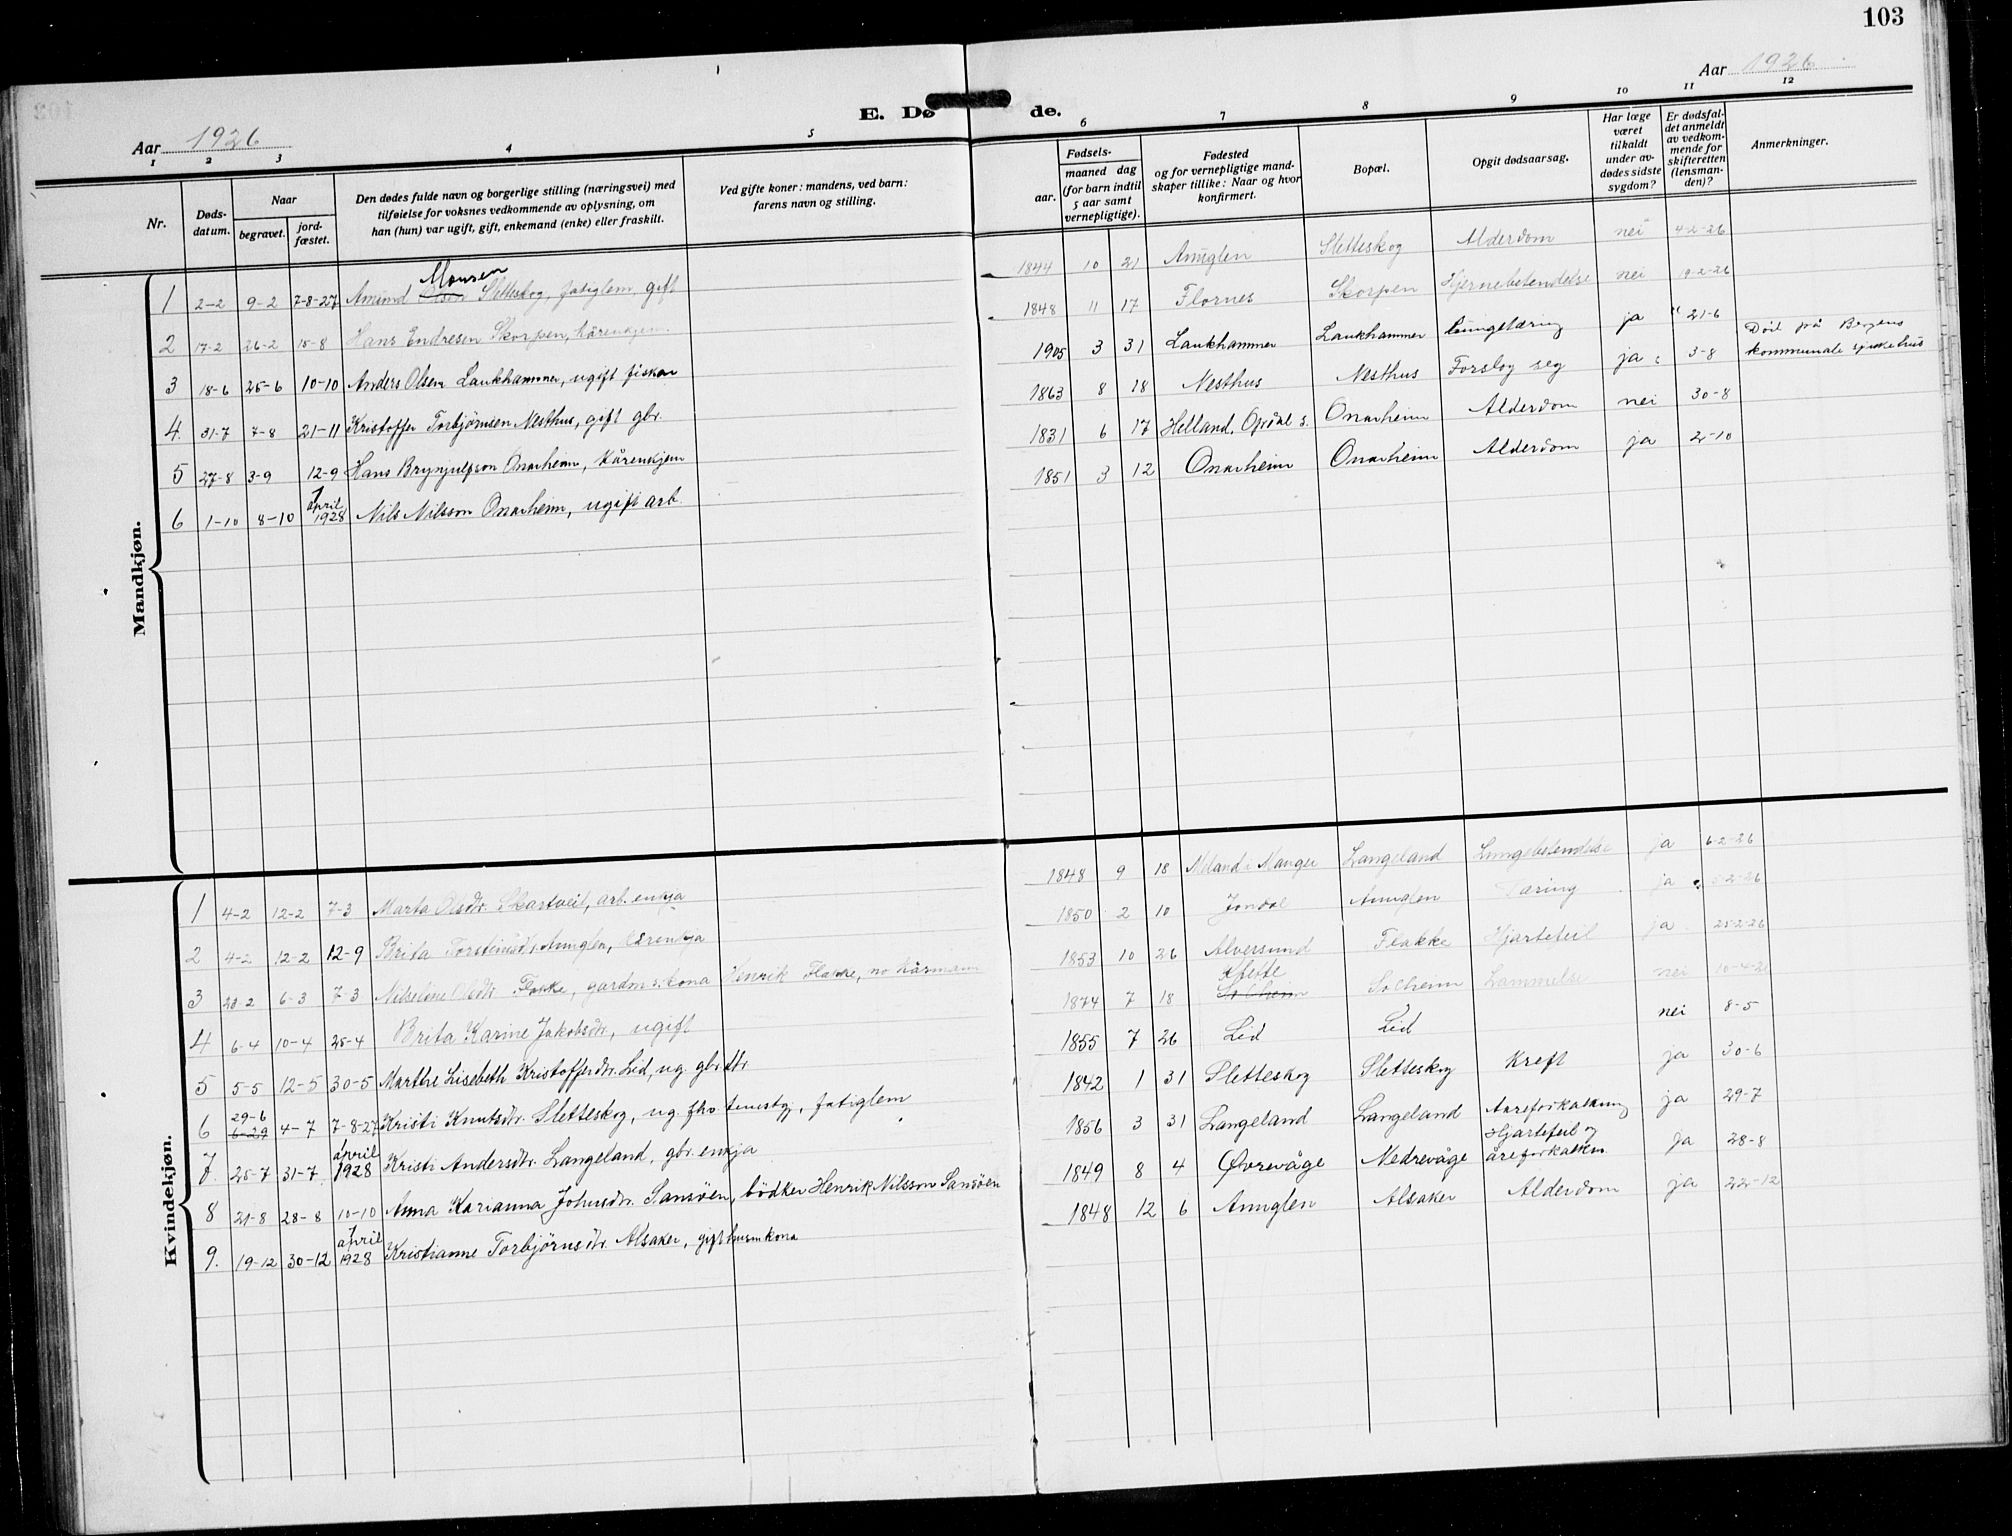 103
Aar 1926
Aar 1926
E. Dø de.
1 2 3 4 5 6 7 8 9 10 11 12
Nr.
Døds-
datum.
Naar
begravet.
jord-
fæstet.
Den dødes fulde navn og borgerlige stilling (næringsvei) med
tilføielse for voksnes vedkommende av oplysning, om
han (hun) var ugift, gift, enkemand (enke) eller fraskilt.
Ved gifte koner: mandens, ved barn:
farens navn og stilling.
Fødsels-
aar.
maaned dag
(for barn indtil
5 aar samt
vernepligtige).
Fødested
og for vernepligtige mand-
skaper tillike: Naar og hvor
konfirmert.
Bopæl.
Opgit dødsaarsag.
Har læge
været
tilkaldt
under av-
dødes sidste
sygdom?
Er dødsfal-
det anmeldt
av vedkom-
mende for
skifteretten
(lensman-
den)?
Anmerkninger.
Mandkjøn.
Monsen
1 2-2 9-2 7-8-27 Amund Olson Sletteskog, fatiglem, gift 1844 10 21 Anuglen Sletteskog Alderdom nei 4-2-26
2 17-2 26-2 15-8 Hans Endresen Skorpen, kårenkjem. 1848 11 17 Flornes Skorpen Hjernebetendelse nei 19-2-26
3 18-6 25-6 10-10 Anders Olsen Laukhammer, ugift fiskar 1905 3 31 Laukhammer Laukhammer Lungetæring ja 21-6 Död på Bergens
kommunale sjukehus
4. 31-7 7-8 21-11 Kristoffer Torbjörnsen Nesthus, gift gbr. 1863 8 18 Nesthus Nesthus Forslog seg ja 3-8
5 27-8 3-9 12-9 Hans Brynjulfson Onarheim, Kårenkjem 1831 6 17 Helland, Opdal s. Onarheim Alderdom nei 30-8
6 1-10 8-10 1 april 1928 Nils Nilsson Onarheim, ugift arb. 1851 3 12 Onarheim Onarheim Alderdom ja 2-10
Kvindekjøn.
1 4-2 12-2 7-3 Marta Olsdtr. Skartveit, arb. enkja 1848 9 18 Meland i Manger Langeland Lungebetendelse ja 6-2-26
2 4-2 12-2 12-9 Brita Torsteinsdtr. Anuglen, kårenkja 1850 2 10 Jondal Anuglen Tæring ja 5-2-26
3 23-2 6-3 7-3 Nilseline Olsdtr. Flakke, gardm.s. kona Henrik Flakke, no kårmann 1853 10 26 Alversund Flakke Hjartefeil ja 25-2-26
4 6-4 10-4 25-4 Brita Karine Jakobsdtr., ugift 1874 7 18 Solheim Solheim Lammelse nei 10-4-26
5 5-5 12-5 30-5 Marthe Lisebeth Kristofferdtr. Lid, ug. gbr. dtr. 1855 7 26 Lid Lid nei 8-5
6 29-6 6-29 4-7 7-8-27 Kristi Knutsdtr. Sletteskog, ug. fhv. tenestgj., fatiglem 1842 1 31 Sletteskog Sletteskog Kreft ja 30-6
7. 25-7 31-7 1 april 1928 Kristi Andersdtr. Langeland, gbr. enkja 1856 3 31 Langeland Langeland Aareforkalkning ja 29-7
8 21-8 28-8 10-10 Anna Karianna Johnsdtr. Sansöen, bödker Henrik Nilsson Sansöen 1849 8 4 Øvrevåge Nedrevåge Hjartefeil og
åreforkalkn. ja 28-8
9. 19-12 30-12 1 april 1928 Kristianne Torbjörnsdtr. Alsaker, gift husmkona 1848 12 6 Anuglen Alsaker Alderdom ja 22-12